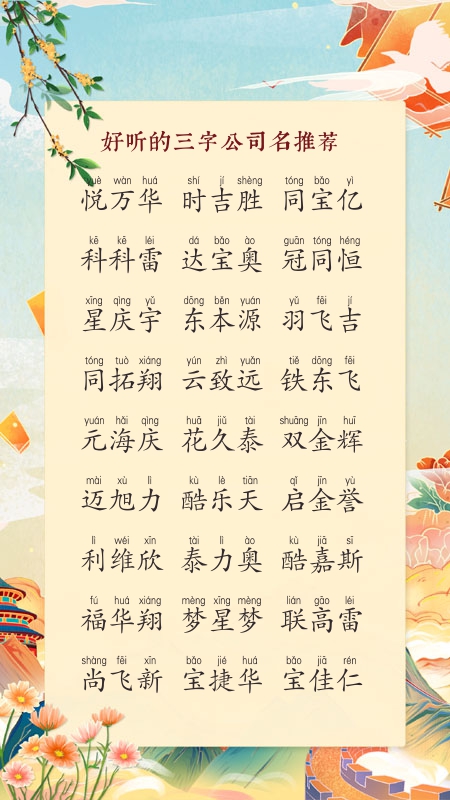 好听的三字公司名推荐
yuè wàn huá shí jí shèng tóng bǎo yì
悦万华 时吉胜 同宝亿
kē kē léi dá bǎo ào guān tóng héng
科科雷 达宝奥 冠同恒
xīng qìng yǔ dōng běn yuán yǔ fēi jí
星庆宇 东本源 羽飞吉
tóng tuò xiáng yún zhì yuǎn tiě dōng fēi
同拓翔 云致远 铁东飞
yuán hǎi qìng huā jiǔ tài shuāng jīn huī
元海庆 花久泰 双金辉
mài xù lì kù lè tiān qǐ jīn yù
迈旭力 酷乐天 启金誉
lì wéi xīn tài lì ào kù jiā sī
利维欣 泰力奥 酷嘉斯
fú huá xiáng mèng xīng mèng lián gāo léi
福华翔 梦星梦 联高雷
shàng fēi xīn bǎo jié huá bǎo jiā rén
尚飞新 宝捷华 宝佳仁